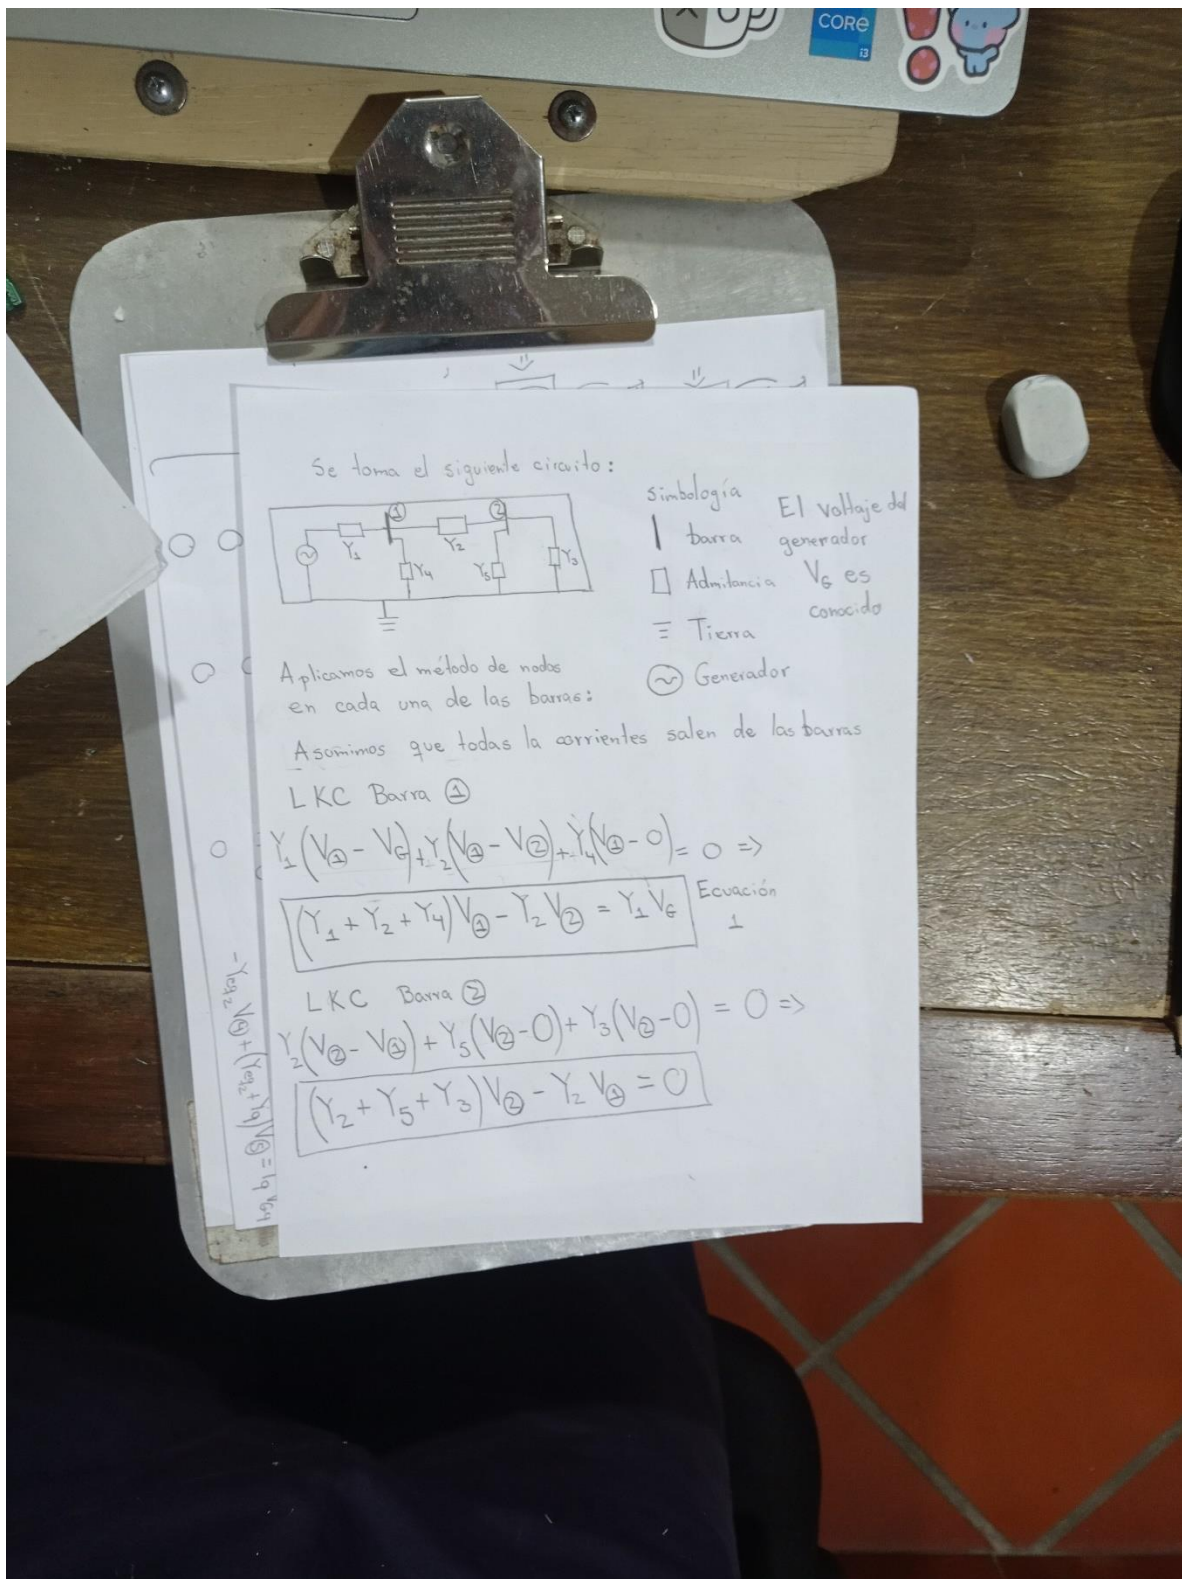 CORE
i3
Se toma el siguiente circuito:
① ②
Y₁ Y₂ Y₃
Y₄ Y₅
simbología
barra
Admitancia
Tierra
Generador
El voltaje del
generador
V_G es
conocido
Aplicamos el método de nodos
en cada una de las barras:
Asumimos que todas la corrientes salen de las barras
LKC Barra ①
Y₁(V① - V_G) + Y₂(V① - V②) + Y₄(V① - 0) = 0 =>
(Y₁ + Y₂ + Y₄)V① - Y₂ V② = Y₁ V_G
Ecuación
1
LKC Barra ②
Y₂(V② - V①) + Y₅(V② - 0) + Y₃(V② - 0) = 0 =>
(Y₂ + Y₅ + Y₃)V② - Y₂ V① = 0